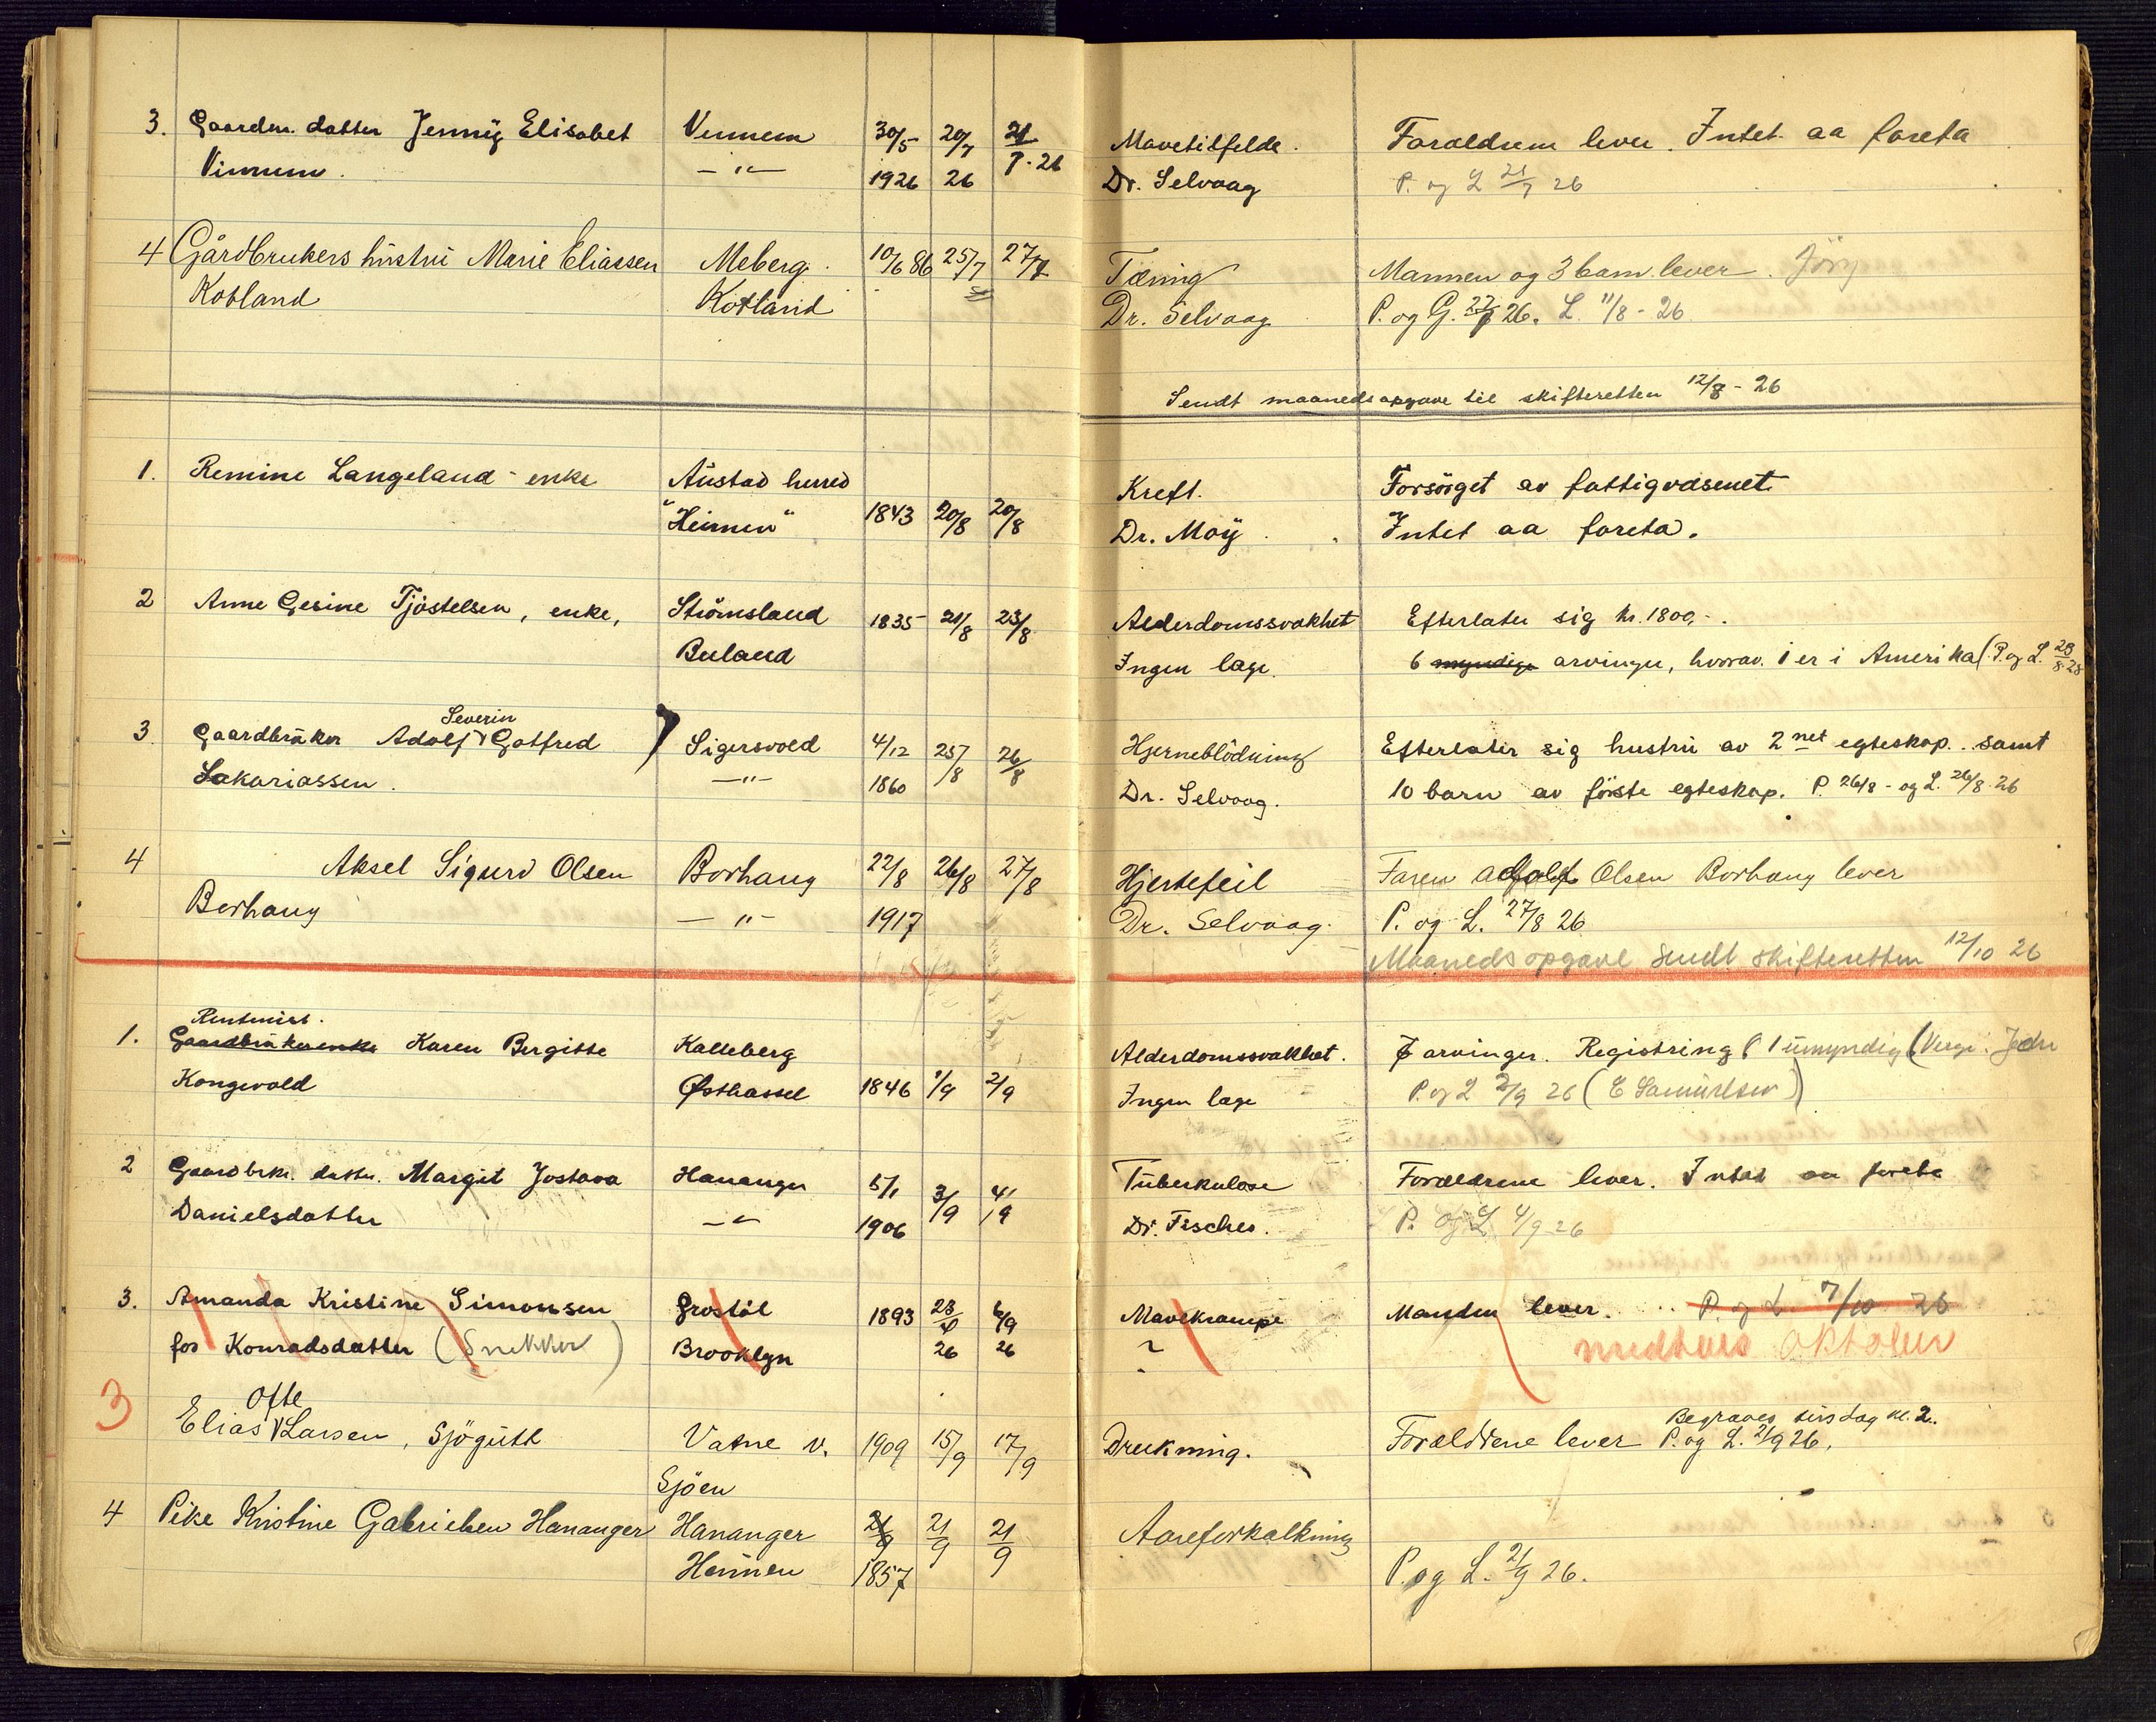 3. Gaardm. datter Jenny Elisabet Vennem 30/5 20/7 21 Mavetilfelde. Foraeldrene lever. Intet aa foreta
Vinnem. —"— 1926 26 7.26 Dr. Selvaag P. og L 21/7 26
4 Gårdbrukers hustru Marie Eliassen Meberg. 10/6 86 25/7 27/7 Tæring Mannen og 3 barn lever.
Kotland Kotland Dr. Selvaag P. og G. 27/7 26. L. 11/8 - 26
Sendt maanedsopgave til skifteretten 12/8 - 26
1. Remine Langeland - enke Austad herred Kreft. Forsörget av fattigvæsenet.
"Heimen" 1843 20/8 20/8 Dr. Moy Intet aa foreta.
2 Anne Gesine Tjøstelsen, enke, Strömsland 1835 21/8 23/8 Alderdomssvakhet Efterlater sig kr. 1800,-.
Buland Ingen læge. 6 myndige arvinger, hvorav 1 er i Amerika (P. og L. 28/8.26
Severin
3 Gaardbruker Adolf Gotfred Sigersvold 4/12 25/8 26/8 Hjerneblödning Efterlater sig hustru av 2net egteskap.. samt
Sakariassen. —"— 1860 Dr. Selvaag. 10 barn av förste egteskap. P. 26/8 - og L. 26/8.26
4 Aksel Sigurd Olsen Borhaug 22/8 26/8 27/8 Hjertefeil Faren Adolf Olsen Borhaug lever
Borhaug —"— 1917 Dr. Selvaag. P. og L. 27/8 26
Maanedsopgave sendt skifteretten 12/10 26
Rentenist.
1. Gaardbrukerenke Karen Bergitte Kalleberg Alderdomssvakhet. 7 arvinger. Registring 1 umyndig (Verge:
Kongevold Østhassel 1846 1/9 2/9 Ingen læge P. og L 2/9 26 (E Samuelsen)
2 Gaardbrk. datter. Margit Jostava Hananger 5/1 3/9 4/9 Tuberkulose Foraeldrene lever. Intet aa foreta
Danielsdatter —"— 1906 Dr. Fischer. P. og L 4/9-26
3. Amanda Kristine Simonsen Grostöl 1893 28 6/9 Mavekrampe Manden lever. P. og L. 7/10 26
før Konradsdatter (Snekker) Brooklyn 26 26 ? medtaes Oktober
Ofte
Begraves tirsdag kl. 2.
3 Elias Larsen, Sjögutt Vatne v. 1909 15/9 17/9 Drukning. Forældrene lever P. og L. 21/9 26.
Sjöen
4 Pike Kristine Gabrielsen Hananger Hananger 21/9 21/9 21/9 Aareforkalkning
Heimen 1857 P. og L. 21/9 26.